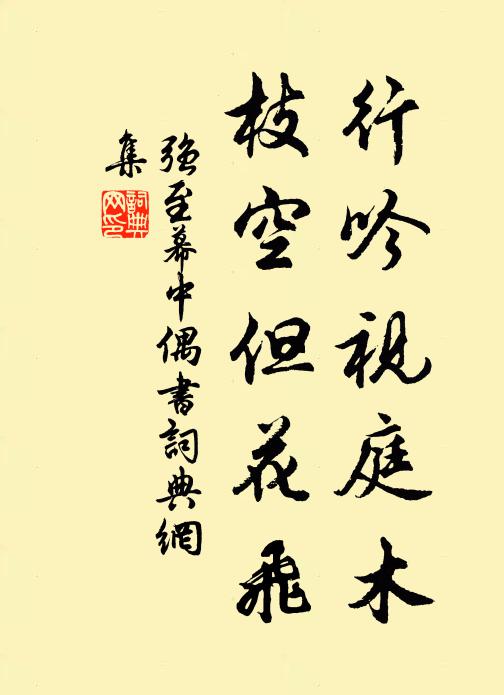 行吟視庭木
枝空但花飛
強至幕中偶書詞典網
集
詞典網印